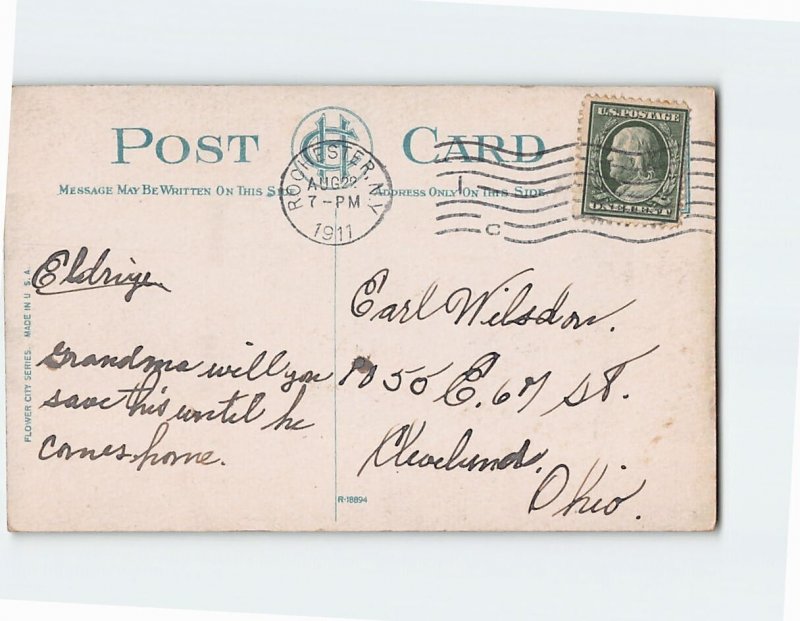 POST CARD
MESSAGE MAY BE WRITTEN ON THIS SIDE
ADDRESS ONLY ON THIS SIDE
ROCHESTER, N.Y.
AUG 22
7-PM
1911
U.S. POSTAGE
ONE CENT
FLOWER CITY SERIES. MADE IN U.S.A.
Grandma will you
save this until he
comes home.
Earl Wilsdon.
1050 E. 67 St.
Cleveland,
Ohio.
R-18894